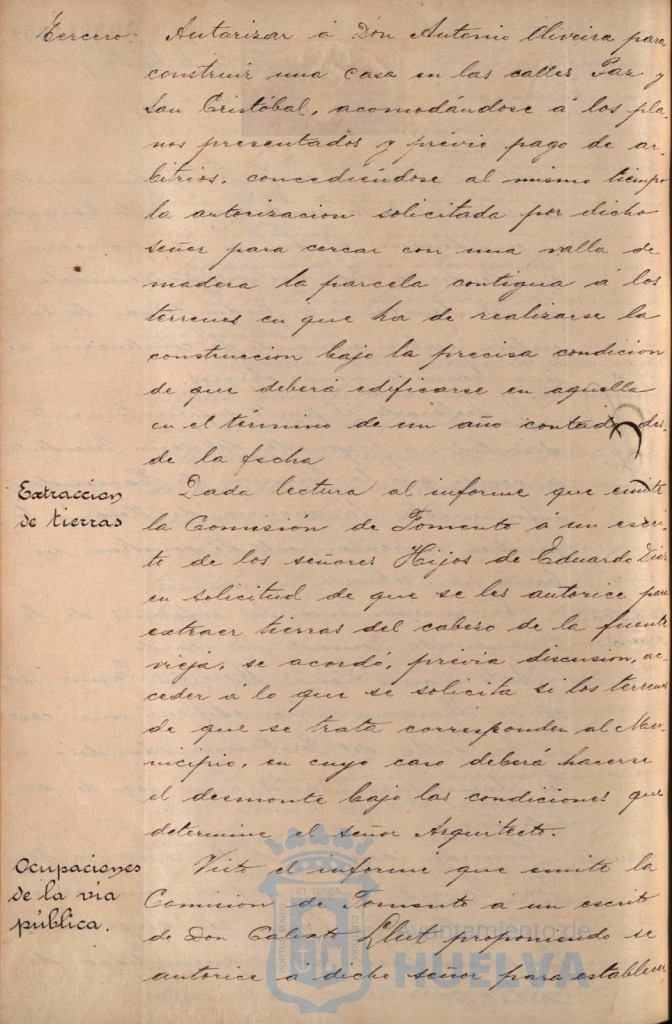 Tercero. Autorizar á Don Antonio Oliveira para
construir una casa en las calles Paz y
San Cristóbal, acomodándose á los pla-
nos presentados y prévio pago de ar-
bitrios, concediéndose al mismo tiempo
la autorizacion solicitada por dicho
señor para cercar con una valla de
madera la parcela contigua á los
terrenos en que ha de realizarse la
construccion bajo la precisa condicion
de que deberá edificarse en aquella
en el término de un año contado des-
de la fecha
Extraccion
de tierras
Dada lectura al informe que emite
la Comisión de Fomento á un escri-
to de los señores Hijos de Eduardo Diaz
en solicitud de que se les autorice para
extraer tierras del cabezo de la fuente
vieja, se acordó, prévia discusion, ac-
ceder á lo que se solicita si los terrenos
de que se trata corresponden al Mu-
nicipio, en cuyo caso deberá hacerse
el desmonte bajo las condiciones que
determine el señor Arquitecto.
Ocupaciones
de la via
pública.
Visto el informe que emite la
Comision de Fomento á un escrito
de Don Calixto Llut proponiendo se
autorice á dicho señor para establecer
ET TERRAE
Ayuntamiento de
HUELVA